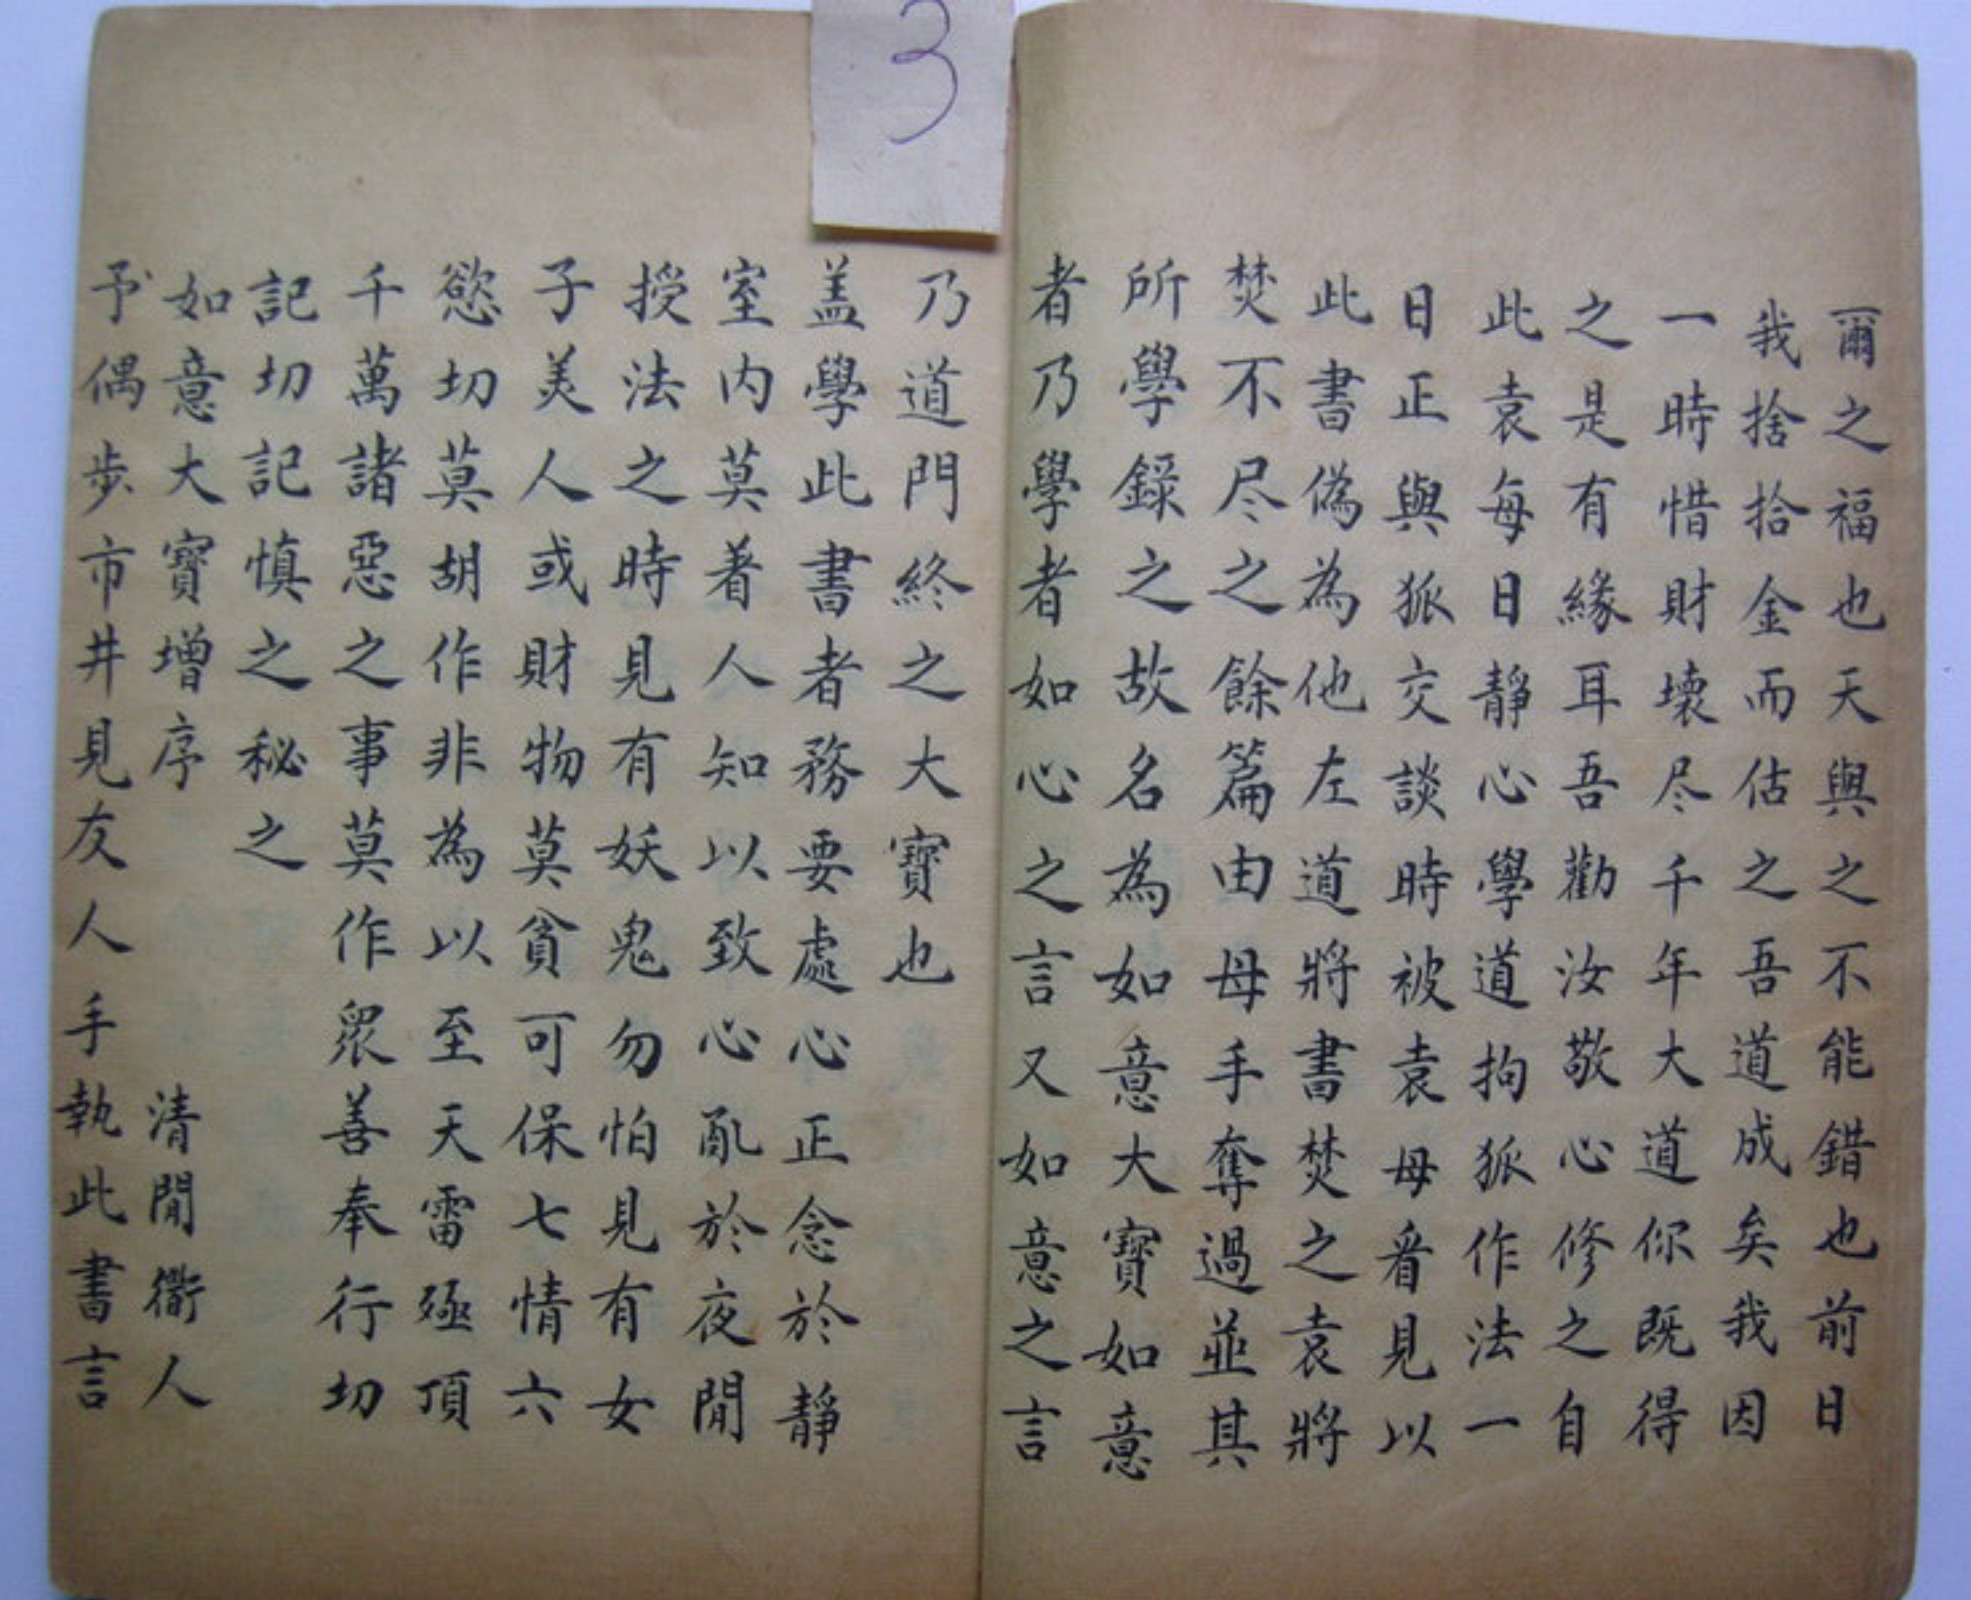 3
爾之福也天與之不能錯也前日
我捨拾金而估之吾道成矣我因
一時惜財壞尽千年大道你既得
之是有緣耳吾勸汝敬心修之自
此袁每日靜心學道拘狐作法一
日正與狐交談時被袁母看見以
此書偽為他左道將書焚之袁將
焚不尽之餘篇由母手奪過並其
所學錄之故名為如意大寶如意
者乃學者如心之言又如意之言
乃道門終之大寶也
盖學此書者務要處心正念於靜
室內莫著人知以致心亂於夜閒
授法之時見有妖鬼勿怕見有女
子美人或財物莫貪可保七情六
慾切莫胡作非為以至天雷殛頂
千萬諸惡之事莫作眾善奉行切
記切記慎之秘之
如意大寶增序 清閒衢人
予偶步市井見友人手執此書言